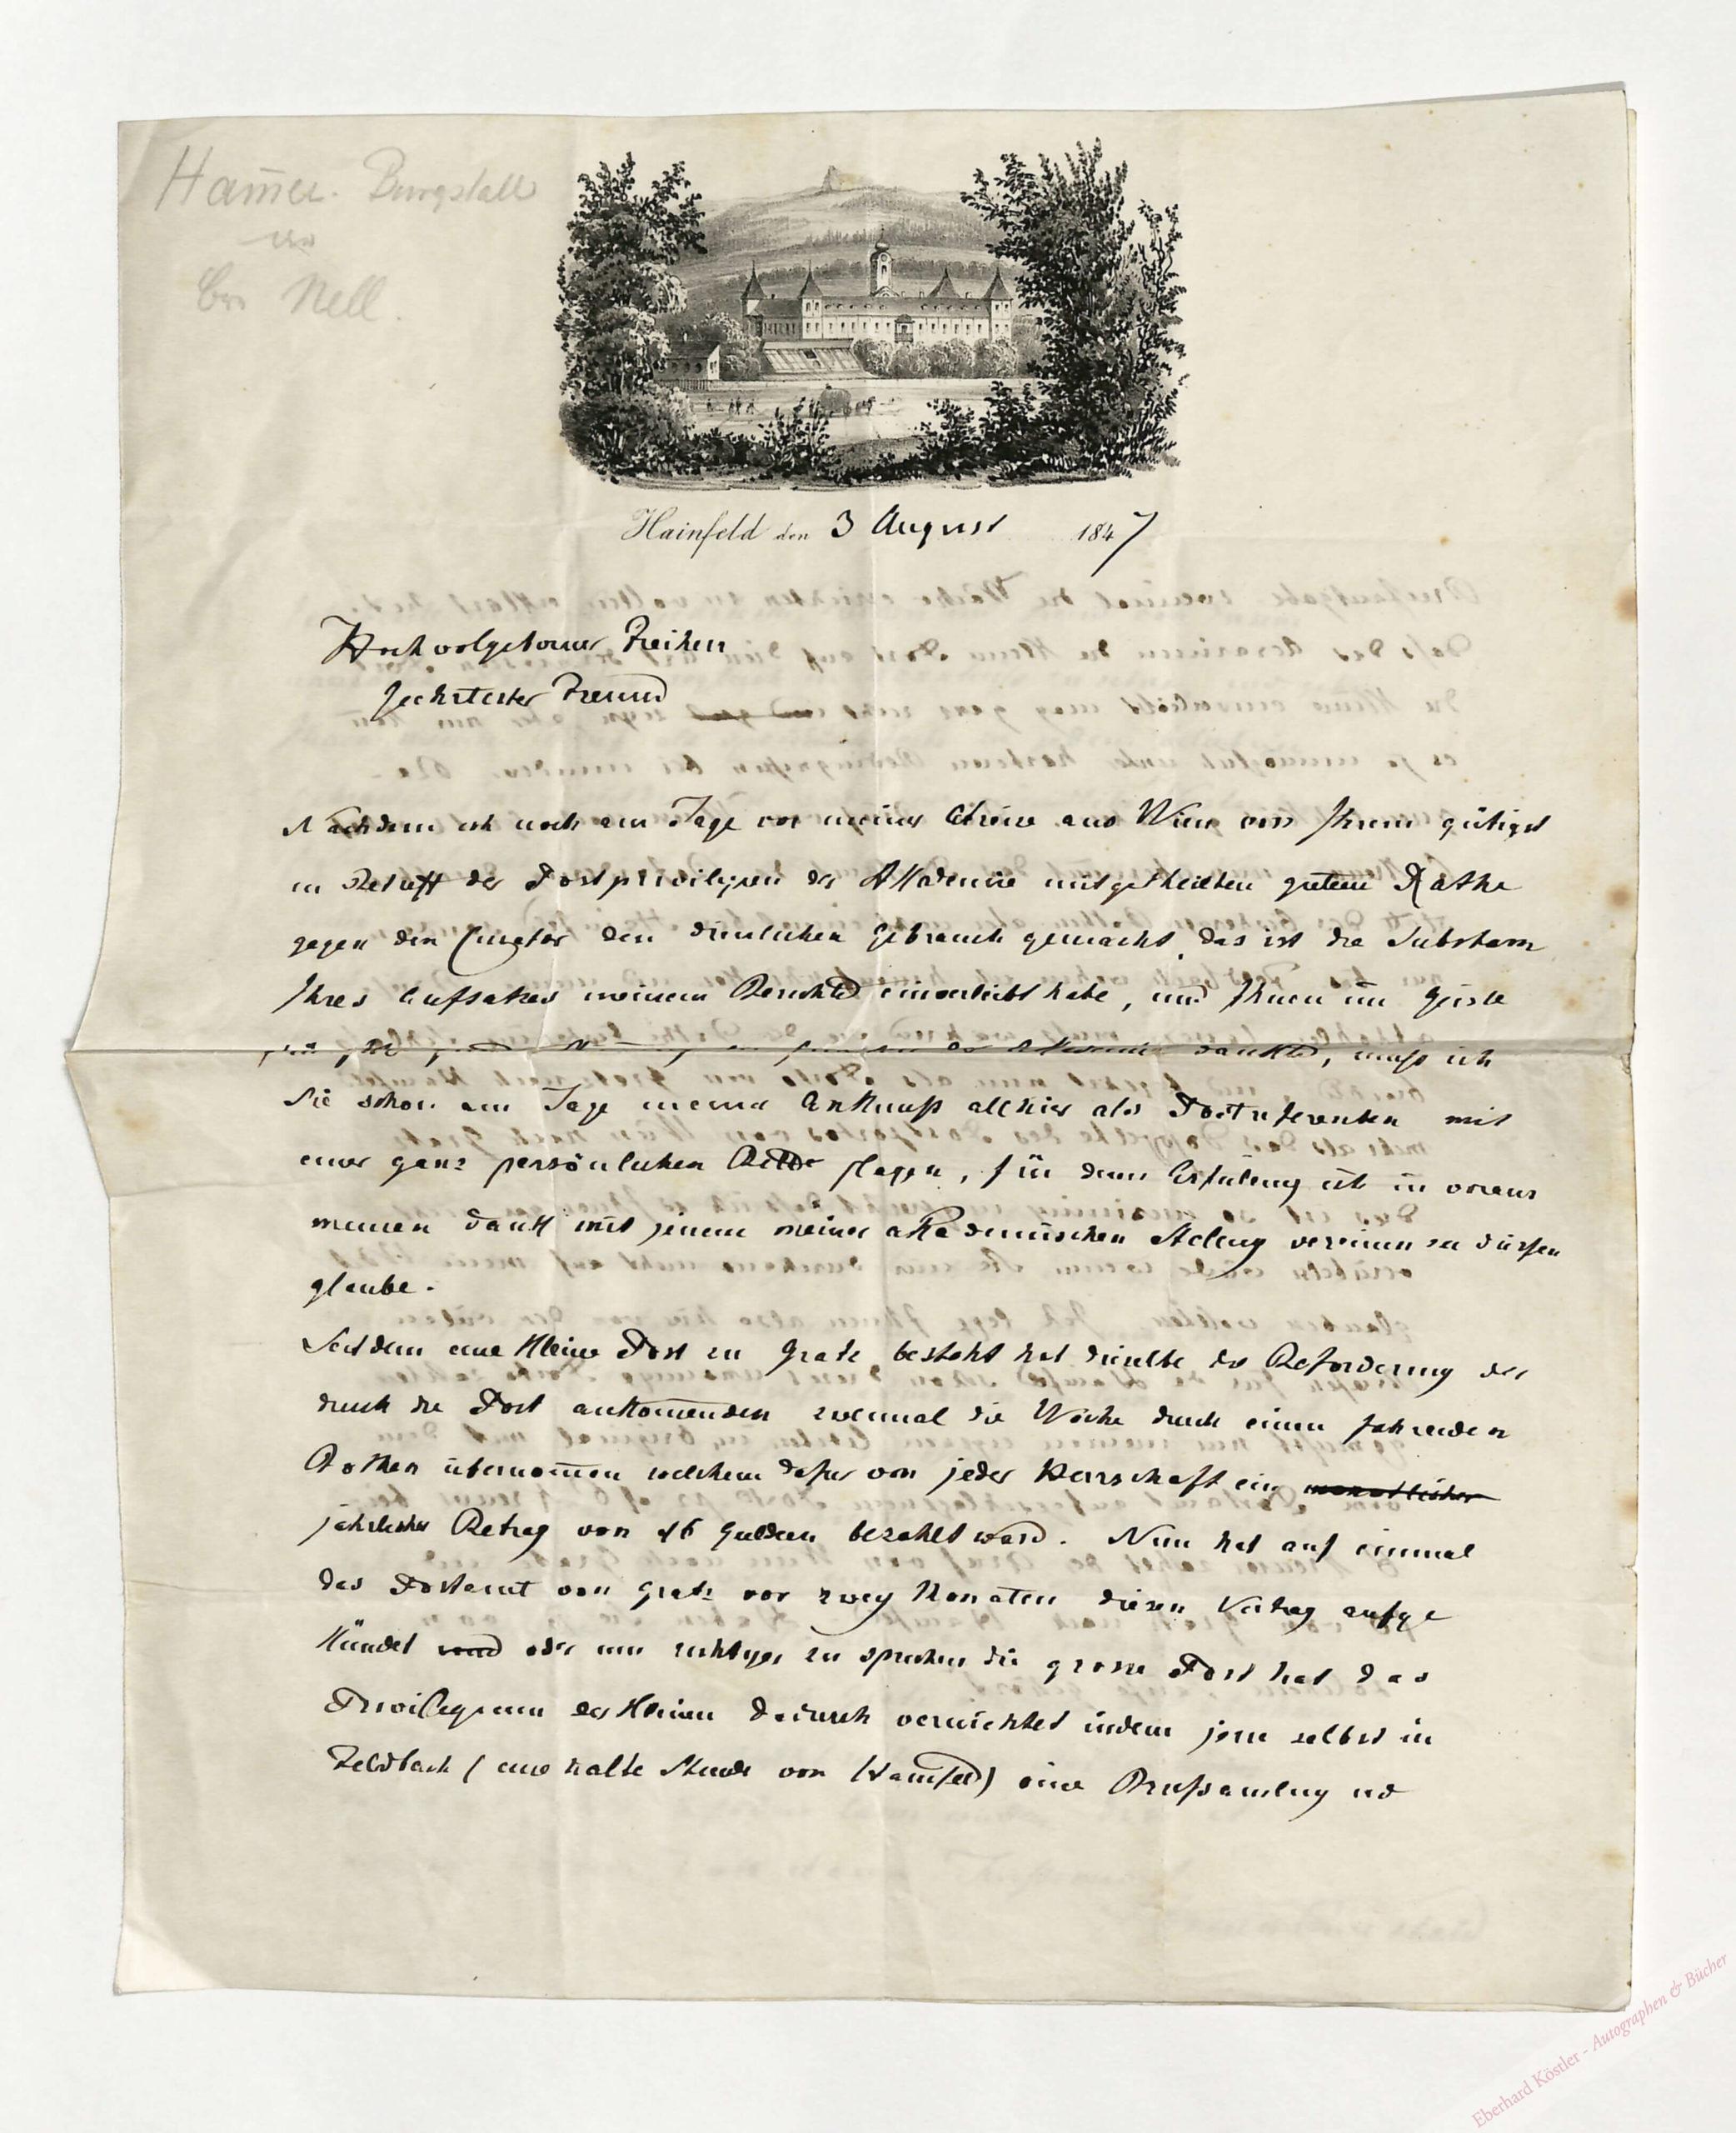 Ham̄er. Burgstall
Nell.
Hainfeld den 3 August 1847
Hochwolgeborner Freiherr
geehrtester Freund
Nachdem ich noch am Tage vor meiner Abreise aus Wien von Ihrem gütigst
in Betreff der Postprivilegien der Akademie mitgetheilten Rathe
gegen den Curator den dienlichen Gebrauch gemacht, das ist die Substanz
Ihres Aufsatzes meinem Berichte einverleibt habe, und Ihnen im Geiste
dankte, muss ich
Sie schon am Tage meiner Ankunft allhier als Postreferenten mit
einer ganz persönlichen Bitte plagen, für deren Erfüllung ich in voraus
meinen Dank mit jenem meiner akademischen Stellung vereinen zu dürfen
glaube.
Seitdem eine kleine Post zu Gratz besteht hat dieselbe die Beforderung der
durch die Post ankom̄enden zweimal die Woche durch einen fahrenden
Bothen übernom̄en welchem dafur von jeder Herrschaft ein monatlicher
jährlicher Betrag von 16 Gulden bezahlt ward. Nun hat auf einmal
das Postamt von Gratz vor zwey Monaten diesen Vertrag aufge
kündet und oder um richtiger zu sprechen die grosse Post hat das
Privilegium der kleinen dadurch vernichtet indem jene selbst in
Feldbach (eine halbe Stunde von Hainfeld) eine Briefsam̄lung und
Eberhard Köstler - Autographen & Bücher